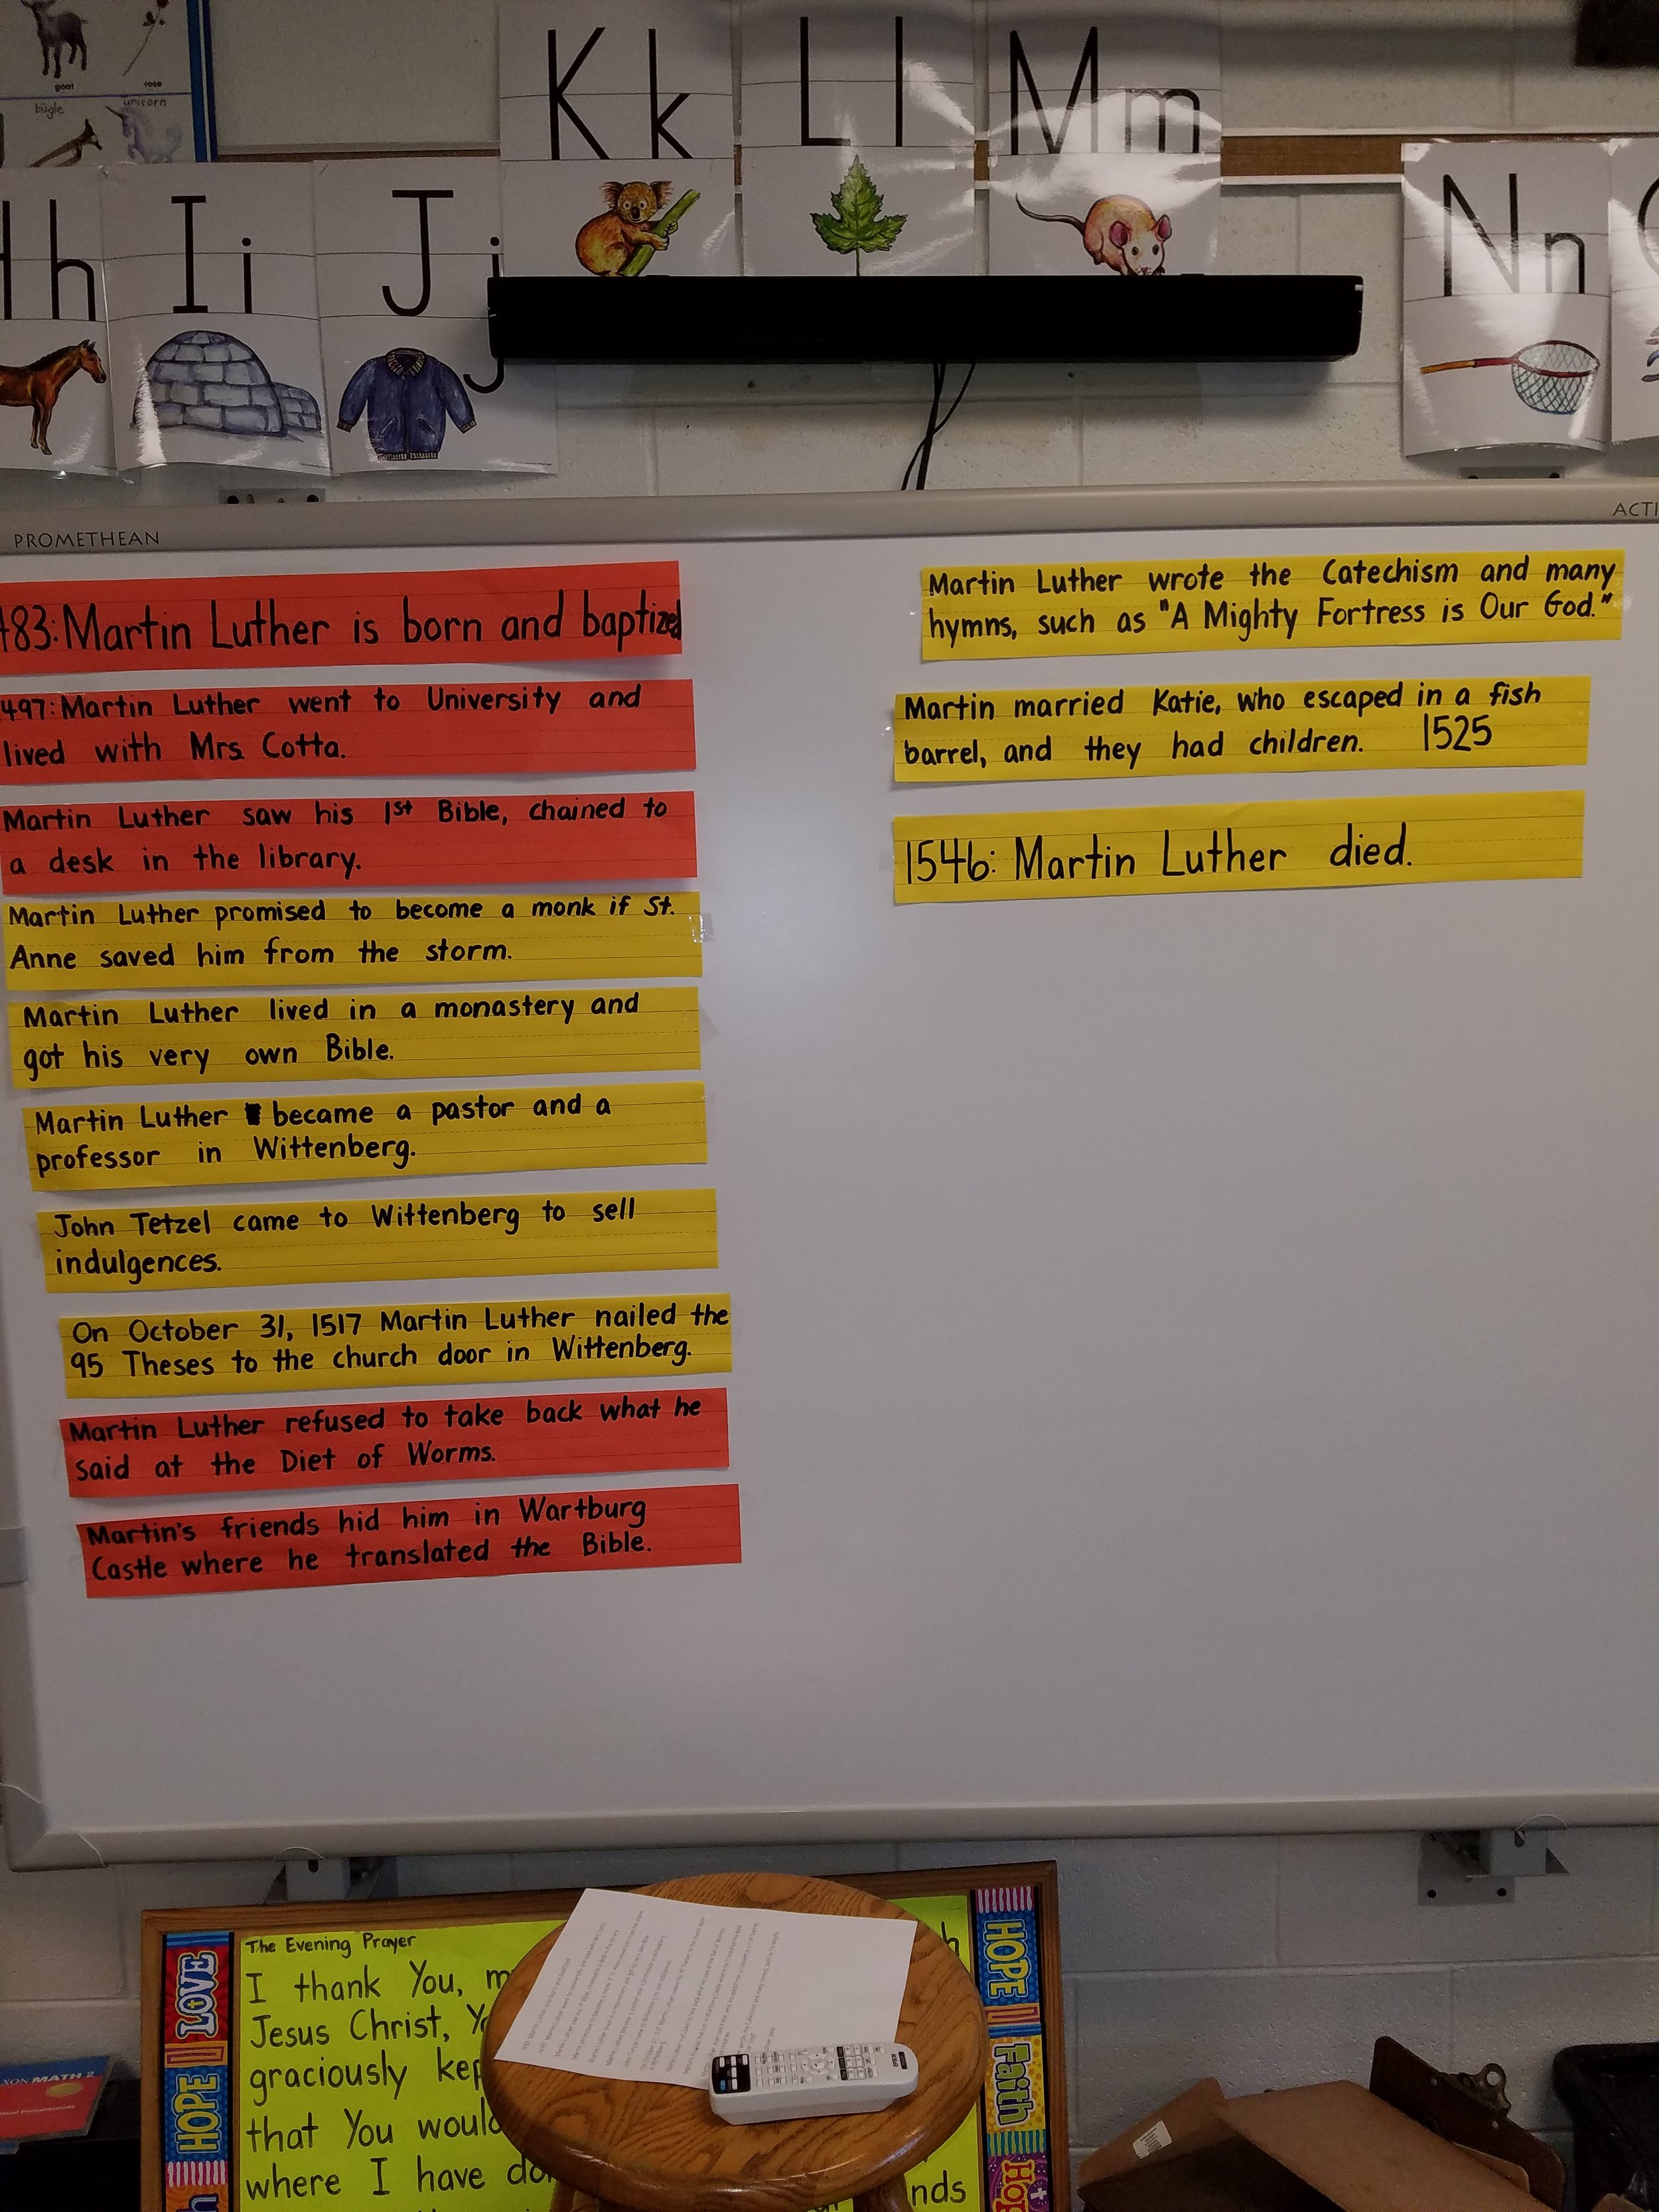 goat
rose
bugle
unicorn
K k
L l
M m
h
I i
J j
N n
PROMETHEAN
ACTI
483: Martin Luther is born and baptized
497: Martin Luther went to University and
lived with Mrs. Cotta.
Martin Luther saw his 1st Bible, chained to
a desk in the library.
Martin Luther promised to become a monk if St.
Anne saved him from the storm.
Martin Luther lived in a monastery and
got his very own Bible.
Martin Luther became a pastor and a
professor in Wittenberg.
John Tetzel came to Wittenberg to sell
indulgences.
On October 31, 1517 Martin Luther nailed the
95 Theses to the church door in Wittenberg.
Martin Luther refused to take back what he
said at the Diet of Worms.
Martin's friends hid him in Wartburg
Castle where he translated the Bible.
Martin Luther wrote the Catechism and many
hymns, such as "A Mighty Fortress is Our God."
Martin married Katie, who escaped in a fish
barrel, and they had children. 1525
1546: Martin Luther died.
The Evening Prayer
I thank You, m
Jesus Christ, Yo
graciously kep
that You would
where I have do
nds
LOVE
HOPE
HOPE
Faith
XON MATH 2